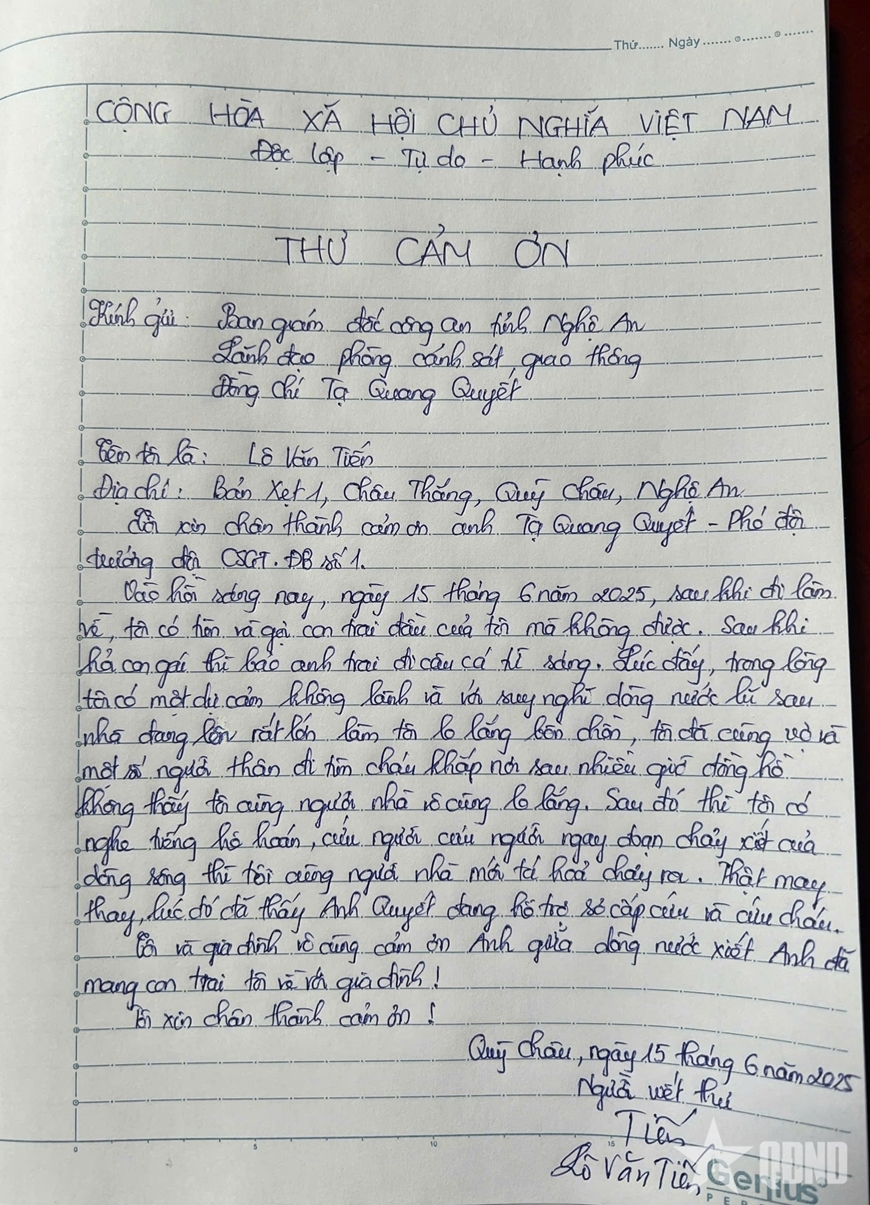 Thứ....... Ngày
CỘNG HÒA XÃ HỘI CHỦ NGHĨA VIỆT NAM
Độc lập - Tự do - Hạnh phúc
THƯ CẢM ƠN
Kính gửi: Ban giám đốc công an tỉnh Nghệ An
Lãnh đạo phòng cảnh sát giao thông
Đồng chí Tạ Quang Quyết
Tên tôi là: Lô Văn Tiến
Địa chỉ: Bản Xẹt 1, Châu Thắng, Quỳ Châu, Nghệ An
Tôi xin chân thành cảm ơn anh Tạ Quang Quyết - Phó đội
trưởng đội CSGT. ĐB số 1.
Vào hồi sáng nay, ngày 15 tháng 6 năm 2025, sau khi đi làm
về, tôi có tìm và gọi con trai đầu của tôi mà không được. Sau khi
hỏi con gái thì bảo anh trai đi câu cá từ sáng. Lúc đấy, trong lòng
tôi có một dự cảm không lành và với suy nghĩ dòng nước lũ sau
nhà đang lên rất lớn làm tôi lo lắng bồn chồn, tôi đã cùng vợ và
một số người thân đi tìm cháu khắp nơi sau nhiều giờ đồng hồ
không thấy tôi cùng người nhà vô cùng lo lắng. Sau đó thì tôi có
nghe tiếng hô hoán, cứu người cứu người ngay đoạn chảy xiết của
dòng sông thì tôi cùng người nhà mới tá hoả chạy ra. Thật may
thay, lúc đó đã thấy Anh Quyết đang hỗ trợ sơ cấp cứu và cứu cháu.
Tôi và gia đình vô cùng cảm ơn Anh giữa dòng nước xiết Anh đã
mang con trai tôi về với gia đình!
Tôi xin chân thành cảm ơn!
Quỳ Châu, ngày 15 tháng 6 năm 2025
Người viết thư
Tiến
Lô Văn Tiến
0 5 10 15
QĐND
Genius